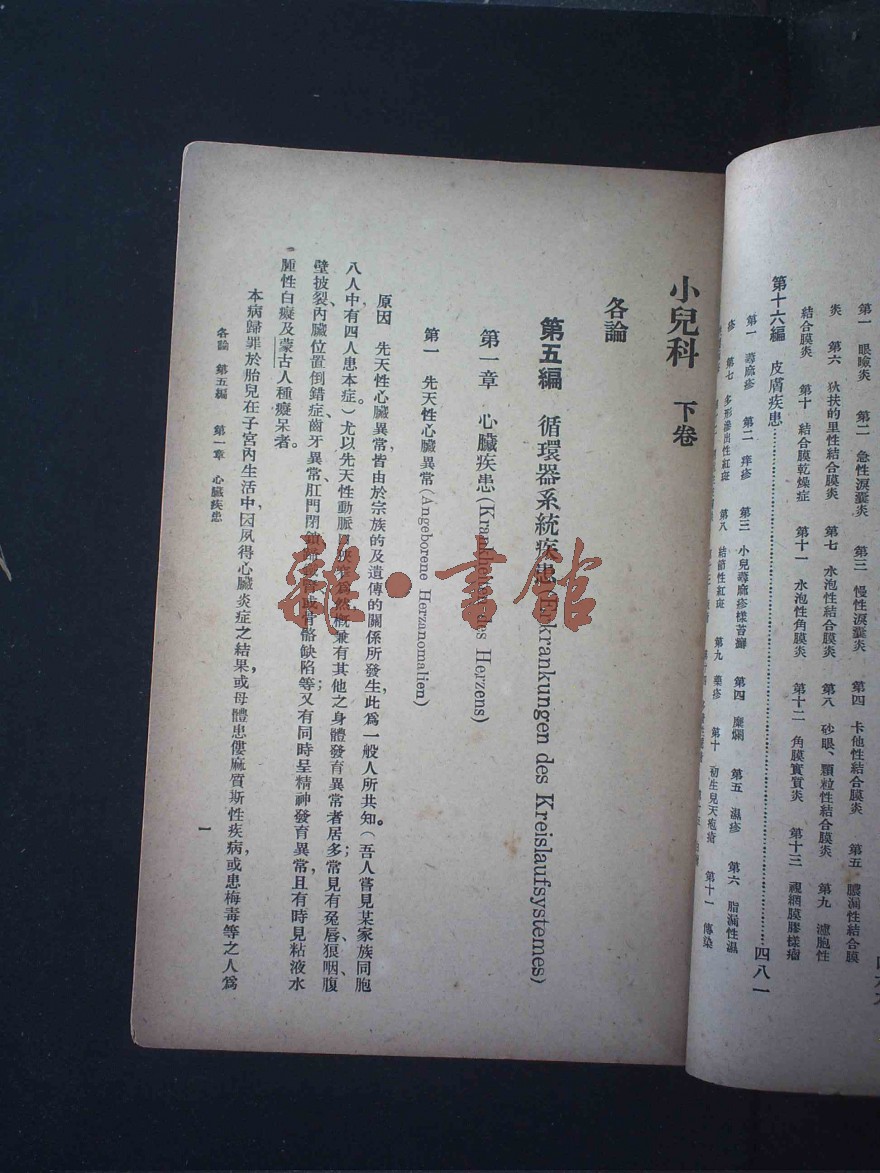 第一　眼瞼炎　第二　急性淚囊炎　第三　慢性淚囊炎　第四　卡他性結合膜
炎　第六　狄扶的里性結合膜炎　第七　水泡性結合膜炎　第八　砂眼、顆粒性結合膜炎　第九　濾胞性
結合膜炎　第十　結合膜乾燥症　第十一　水泡性角膜炎　第十二　角膜實質炎　第十三　視網膜膠樣瘤
第五　膿漏性結合膜
第十六編　皮膚疾患……四八一
第一　蕁麻疹　第二　痒疹　第三　小兒蕁麻疹樣苔癬　第四　糜爛　第五　濕疹　第六　脂漏性濕
疹　第七　多形滲出性紅斑　第八　結節性紅斑　第九　藥疹　第十　初生兒天疱瘡　第十一　傳染
小兒科　下卷
各論
第五編　循環器系統疾患(Erkrankungen des Kreislaufsystemes)
第一章　心臟疾患(Krankheiten des Herzens)
第一　先天性心臟異常(Angeborene Herzanomalien)
原因　先天性心臟異常皆由於宗族的及遺傳的關係所發生，此爲一般人所共知。(吾人嘗見某家族同胞
八人中，有四人患本症。)尤以先天性動脈口狹窄爲然，概兼有其他之身體發育異常者居多；常見有兔唇、狼咽、腹
壁披裂、內臟位置倒錯症、齒牙異常、肛門閉鎖、或骨骼缺陷等；又有同時呈精神發育異常，且有時見粘液水
腫性白癡及蒙古人種癡呆者。
本病歸罪於胎兒在子宮內生活中，因夙得心臟炎症之結果，或母體患僂麻質斯性疾病，或患梅毒等之人爲
各論　第五編　第一章　心臟疾患
一
雜·書館